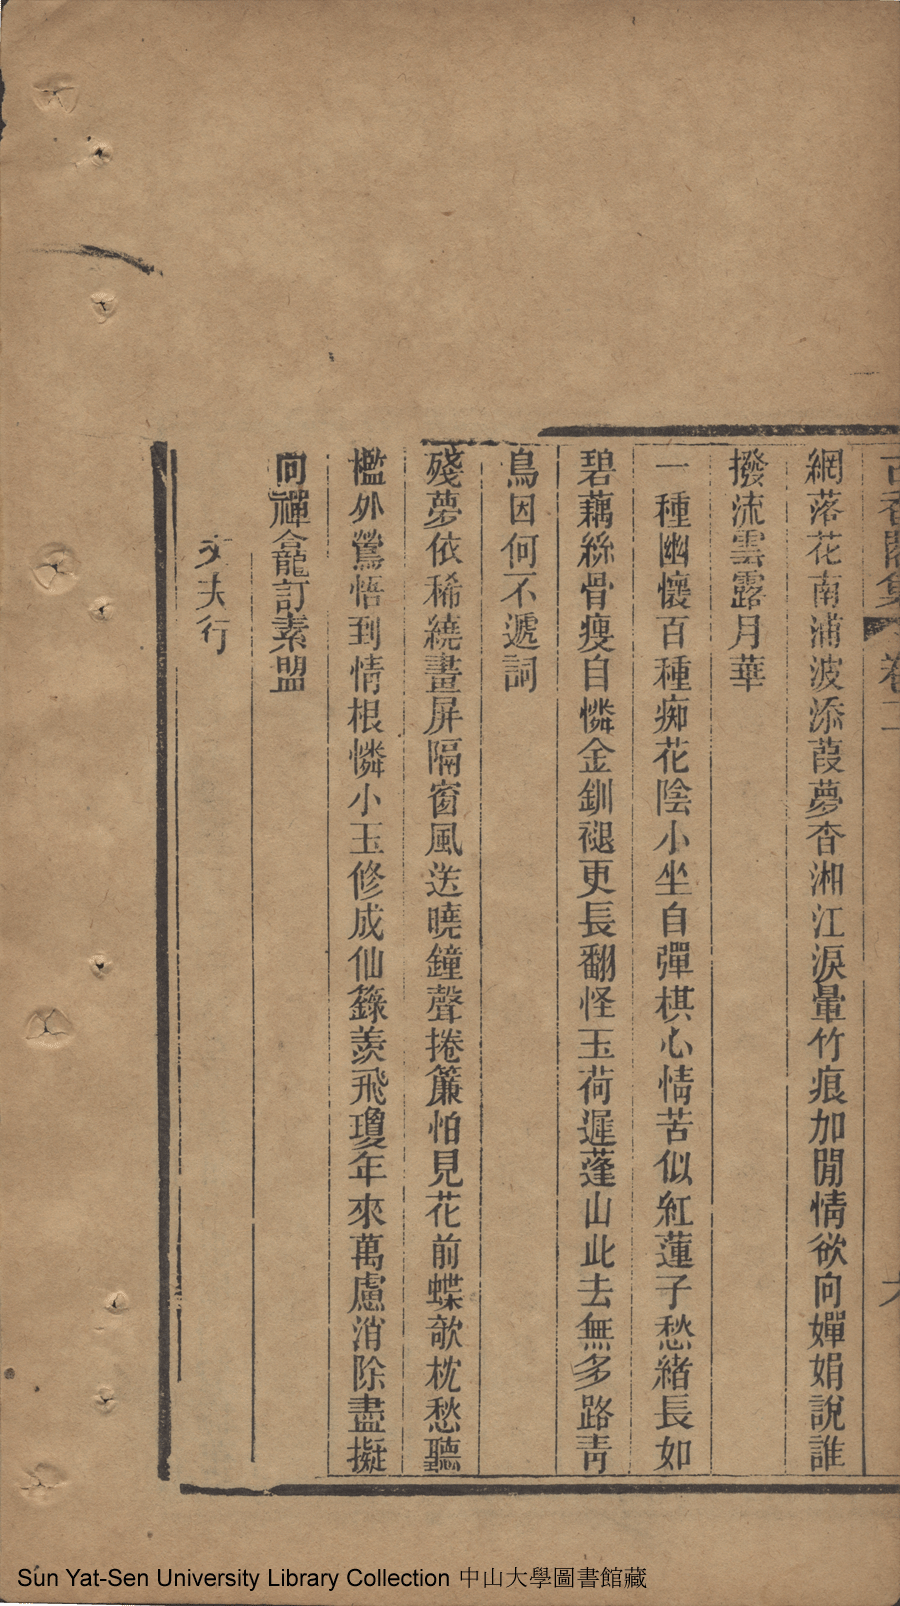 古香閣集 卷二
網落花南浦波添葭夢杳湘江淚暈竹痕加閒情欲向嬋娟說誰
撥流雲露月華
一種幽懷百種痴花陰小坐自彈棋心情苦似紅蓮子愁緒長如
碧藕絲骨瘦自憐金釧褪更長翻怪玉荷遲蓬山此去無多路靑
鳥因何不遞詞
殘夢依稀繞畫屏隔窗風送曉鐘聲捲簾怕見花前蝶欹枕愁聽
檻外鶯悟到情根憐小玉修成仙籙羨飛瓊年來萬慮消除盡擬
向禪龕訂素盟
夫行
Sun Yat-Sen University Library Collection 中山大學圖書館藏